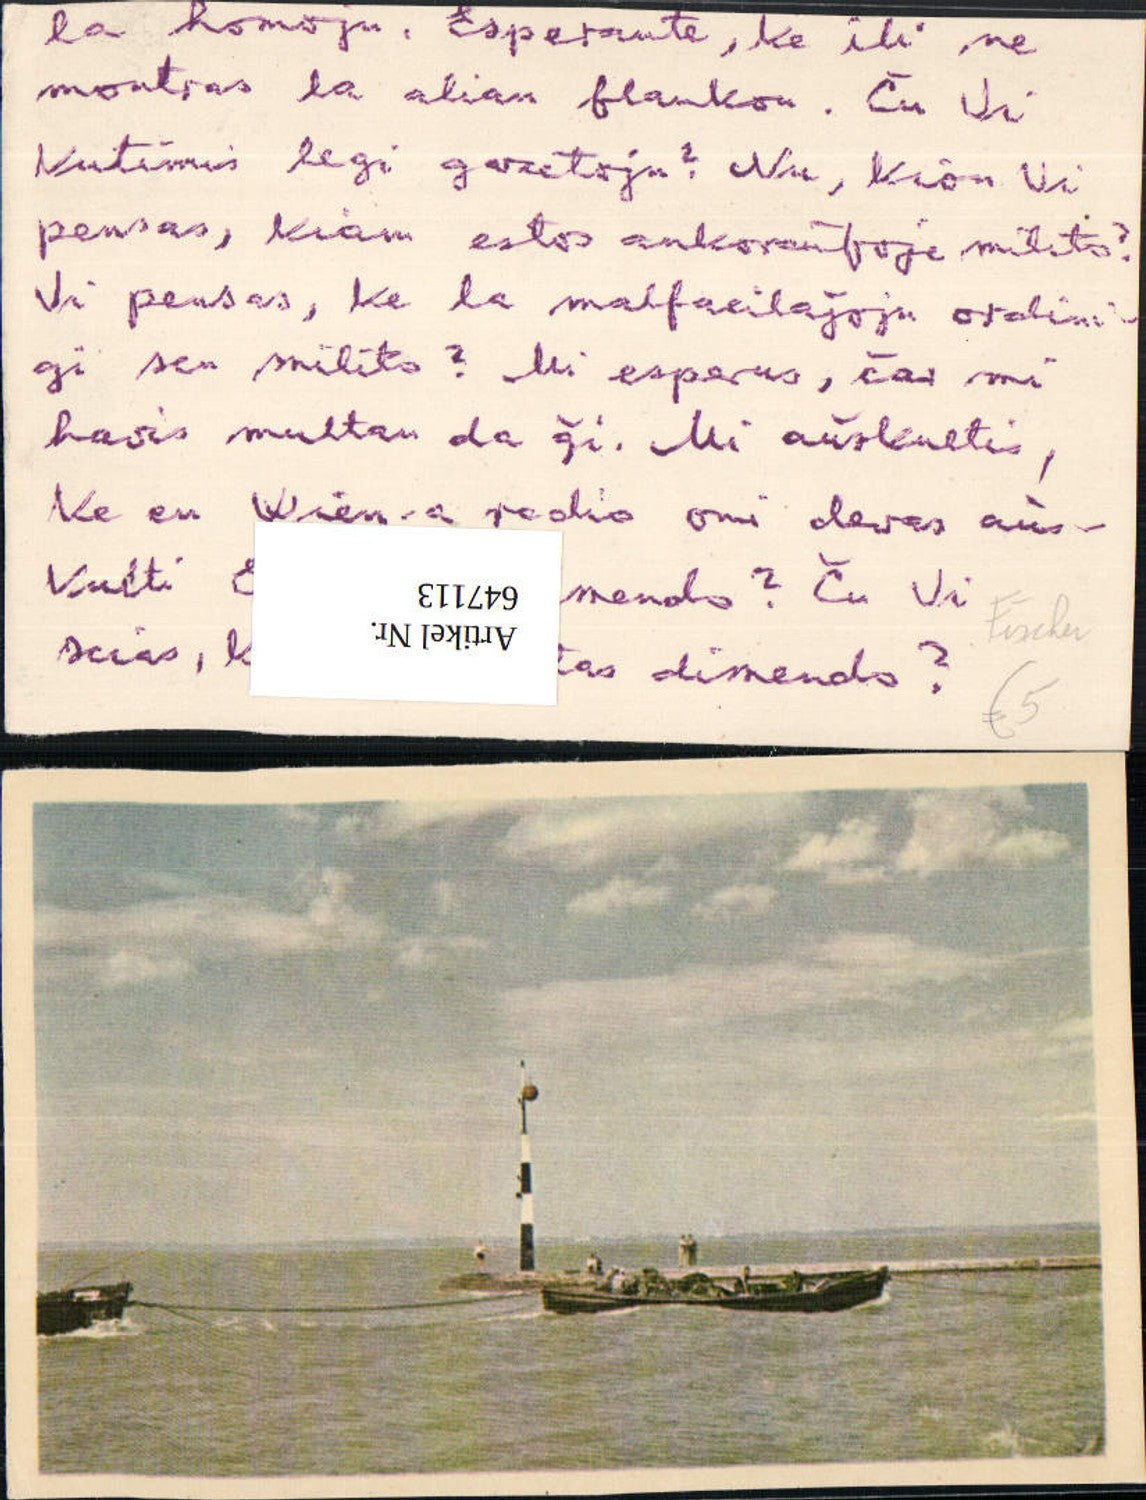 la homoju. Esperante, ke ili ne
montras la alian flankon. Ĉu Vi
kutimis legi gazetoju? Nu, kion Vi
pensas, kiam estos ankoraŭfoje milito?
Vi pensas, ke la malfacilaĵoju ordini-
gi sen milito? Mi esperus, ĉar mi
havis multan da ĝi. Mi aŭskultis,
ke en Wien-a radio oni devas aŭs-
kulti E
mendo? Ĉu Vi
scias, k
tas dimendo?
Artikel Nr.
647113
Fischer
€5